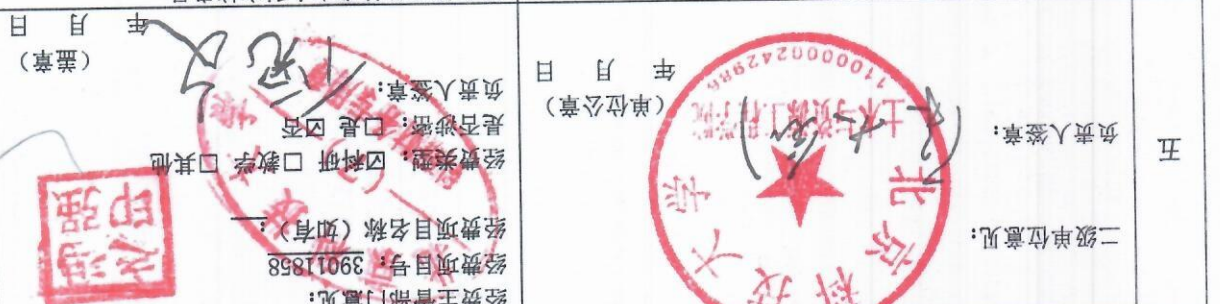 五
二级单位意见:
负责人签章:
(单位公章)
年 月 日
北京科技大学
土木与资源工程学院
1100000242986
经费主管部门意见:
经费项目号: 39011858
经费项目名称(如有):
经费类型: ☑科研 □教学 □其他
是否涉密: □是 ☑否
负责人签章:
(盖章)
年 月 日